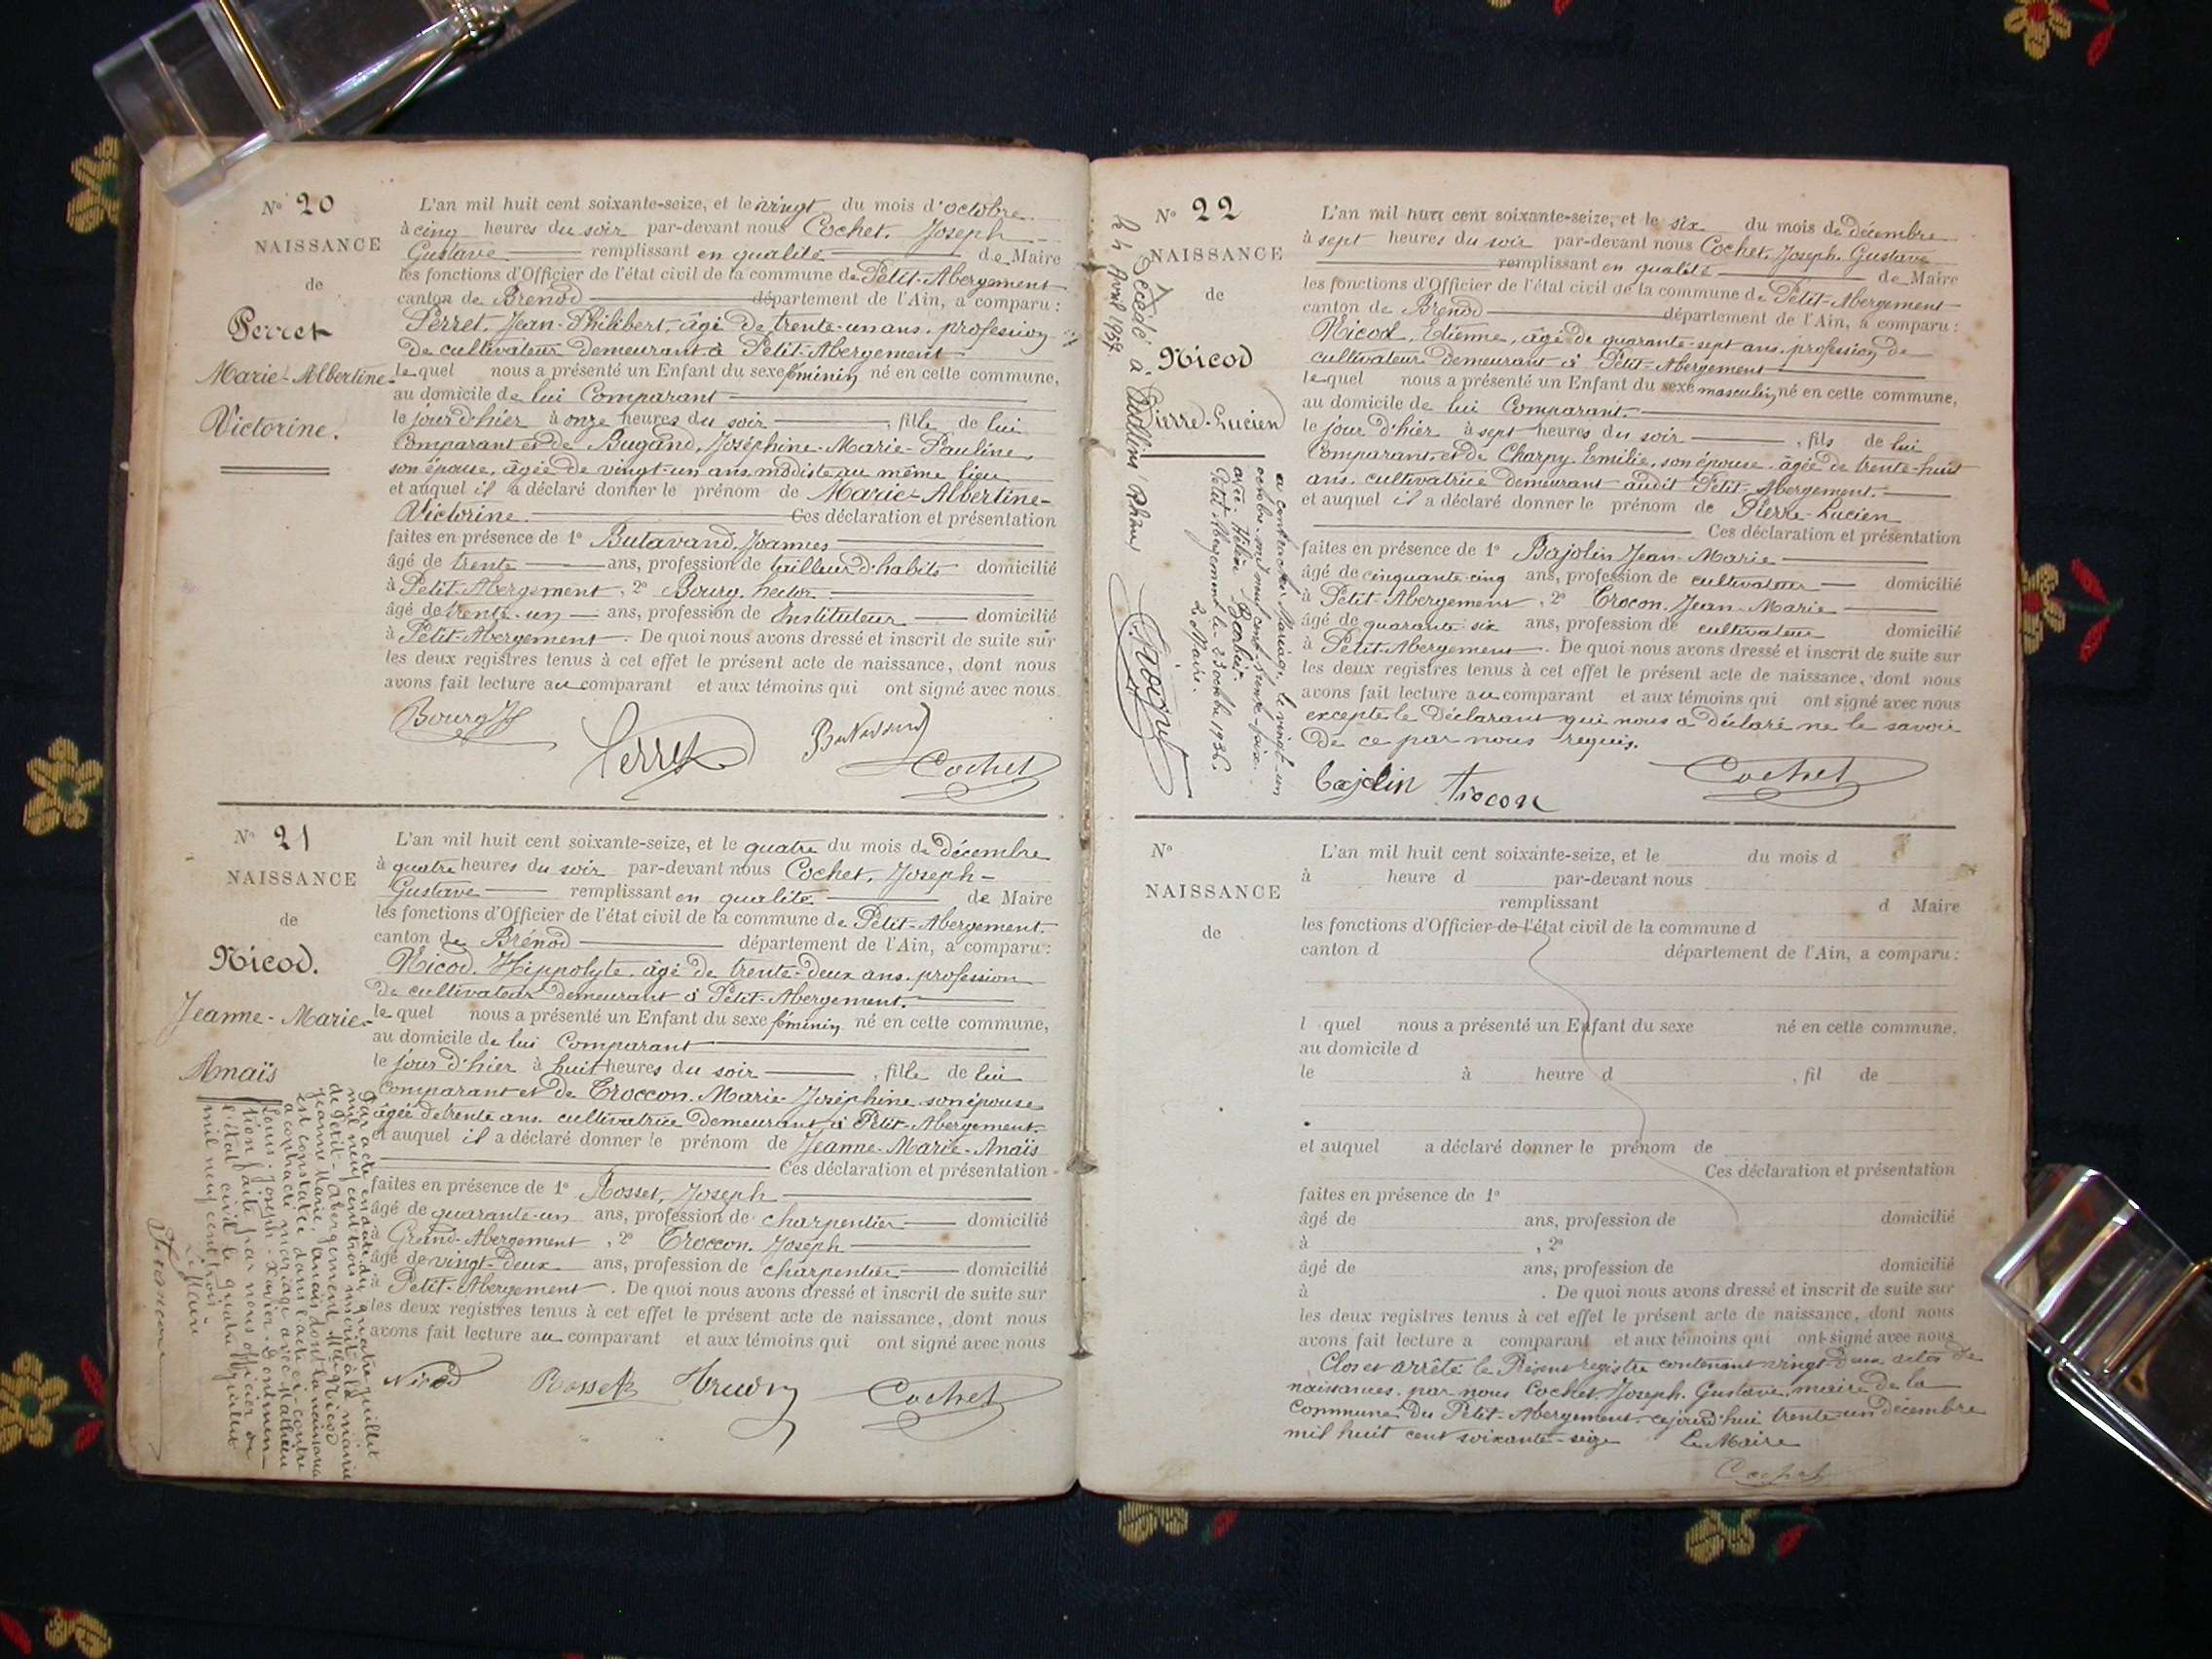 N° 20
NAISSANCE
de
Perret
Marie-Albertine-
Victorine.
L'an mil huit cent soixante-seize, et le vingt du mois d'octobre
à cinq heures du soir par-devant nous Cochet, Joseph
Gustave remplissant en qualité de Maire
les fonctions d'Officier de l'état civil de la commune de Petit-Abergement
canton de Brénod département de l'Ain, a comparu :
Perret, Jean-Philibert, âgé de trente-un ans, profession
de cultivateur demeurant à Petit-Abergement
lequel nous a présenté un Enfant du sexe féminin né en cette commune,
au domicile de lui Comparant
le jour d'hier à onze heures du soir , fille de lui
Comparant et de Bugand, Joséphine-Marie-Pauline,
son épouse, âgée de vingt-un ans, modiste au même lieu
et auquel il a déclaré donner le prénom de Marie-Albertine-
Victorine. Ces déclaration et présentation
faites en présence de 1° Butavand, Joannes
âgé de trente ans, profession de tailleur d'habits domicilié
à Petit-Abergement, 2° Bourg, hector
âgé de trente-un ans, profession de Instituteur domicilié
à Petit-Abergement. De quoi nous avons dressé et inscrit de suite sur
les deux registres tenus à cet effet le présent acte de naissance, dont nous
avons fait lecture au comparant et aux témoins qui ont signé avec nous.
Bourg Perret Butavand Cochet
N° 21
NAISSANCE
de
Nicod.
Jeanne-Marie-
Anaïs
L'an mil huit cent soixante-seize, et le quatre du mois de Décembre
à quatre heures du soir par-devant nous Cochet, Joseph-
Gustave remplissant en qualité de Maire
les fonctions d'Officier de l'état civil de la commune de Petit-Abergement.
canton de Brénod département de l'Ain, a comparu :
Nicod, Hippolyte, âgé de trente-deux ans, profession
de cultivateur demeurant à Petit-Abergement.
lequel nous a présenté un Enfant du sexe féminin né en cette commune,
au domicile de lui Comparant
le jour d'hier à huit heures du soir , fille de lui
Comparant et de Troccon, Marie-Joséphine son épouse
âgée de trente ans, cultivatrice demeurant à Petit-Abergement.
et auquel il a déclaré donner le prénom de Jeanne-Marie-Anaïs
Ces déclaration et présentation
faites en présence de 1° Rosset, Joseph
âgé de quarante-un ans, profession de charpentier domicilié
à Grand-Abergement, 2° Troccon, Joseph
âgé de vingt-deux ans, profession de charpentier domicilié
à Petit-Abergement. De quoi nous avons dressé et inscrit de suite sur
les deux registres tenus à cet effet le présent acte de naissance, dont nous
avons fait lecture au comparant et aux témoins qui ont signé avec nous
Nicod Rosset Cochet
Par acte en date du quatre juillet
mil neuf cent trois inscrit à la mairie
de Petit-Abergement, Mlle Nicod
Jeanne Marie Anaïs dont la naissance
est constatée dans l'acte ci-contre
a contracté mariage avec Mathieu
Louis-Joseph-Xavier. Dont men-
tion faite par nous officier de
l'état civil le quatre Juillet
mil neuf cent trois
Le Maire
N° 22
NAISSANCE
de
Nicod
Pierre-Lucien
Décédé à Oullins Rhône
le 4 Avril 1957
a contracter Mariage le vingt-un
octobre mil neuf cent trente-six
avec Hélène
Petit-Abergement le 23 octobre 1936.
Le Maire.
L'an mil huit cent soixante-seize, et le six du mois de décembre
à sept heures du soir par-devant nous Cochet, Joseph, Gustave
remplissant en qualité de Maire
les fonctions d'Officier de l'état civil de la commune de Petit-Abergement
canton de Brénod département de l'Ain, a comparu :
Nicod, Etienne, âgé de quarante-sept ans, profession de
cultivateur demeurant à Petit-Abergement
lequel nous a présenté un Enfant du sexe masculin né en cette commune,
au domicile de lui Comparant.
le jour d'hier à sept heures du soir , fils de lui
Comparant, et de Charpy, Emilie, son épouse, âgée de trente-huit
ans, cultivatrice demeurant audit Petit-Abergement.
et auquel il a déclaré donner le prénom de Pierre-Lucien
Ces déclaration et présentation
faites en présence de 1° Bajolin Jean-Marie
âgé de cinquante-cinq ans, profession de cultivateur domicilié
à Petit-Abergement, 2° Trocon, Jean-Marie
âgé de quarante-six ans, profession de cultivateur domicilié
à Petit-Abergement. De quoi nous avons dressé et inscrit de suite sur
les deux registres tenus à cet effet le présent acte de naissance, dont nous
avons fait lecture au comparant et aux témoins qui ont signé avec nous
excepté le Déclarant qui nous a déclaré ne le savoir
de ce par nous requis.
Bajolin Trocon Cochet
N°
NAISSANCE
de
L'an mil huit cent soixante-seize, et le du mois d
à heure d par-devant nous
remplissant d Maire
les fonctions d'Officier de l'état civil de la commune d
canton d département de l'Ain, a comparu :
l quel nous a présenté un Enfant du sexe né en cette commune.
au domicile d
le à heure d , fil de
et auquel a déclaré donner le prénom de
Ces déclaration et présentation
faites en présence de 1°
âgé de ans, profession de domicilié
à , 2°
âgé de ans, profession de domicilié
à . De quoi nous avons dressé et inscrit de suite sur
les deux registres tenus à cet effet le présent acte de naissance, dont nous
avons fait lecture a comparant et aux témoins qui ont signé avec nous
Clos et arrêté le Présent registre contenant vingt-deux actes de
naissances, par nous Cochet Joseph, Gustave, maire de la
Commune du Petit-Abergement, cejourd'hui trente-un Décembre
mil huit cent soixante-seize Le Maire
Cochet